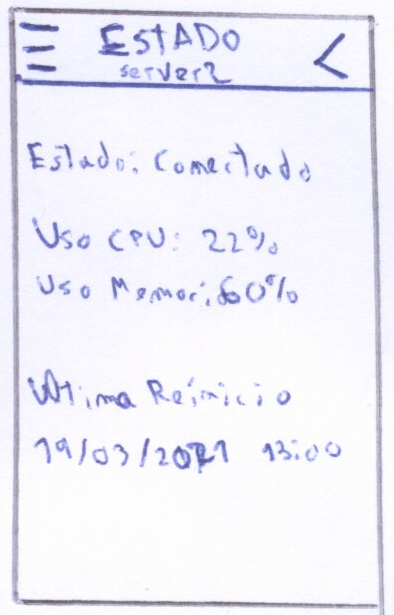 ESTADO
server2
Estado: Conectado
Uso CPU: 22%
Uso Memori: 60%
Ultima Reinicio
19/03/2021 13:00